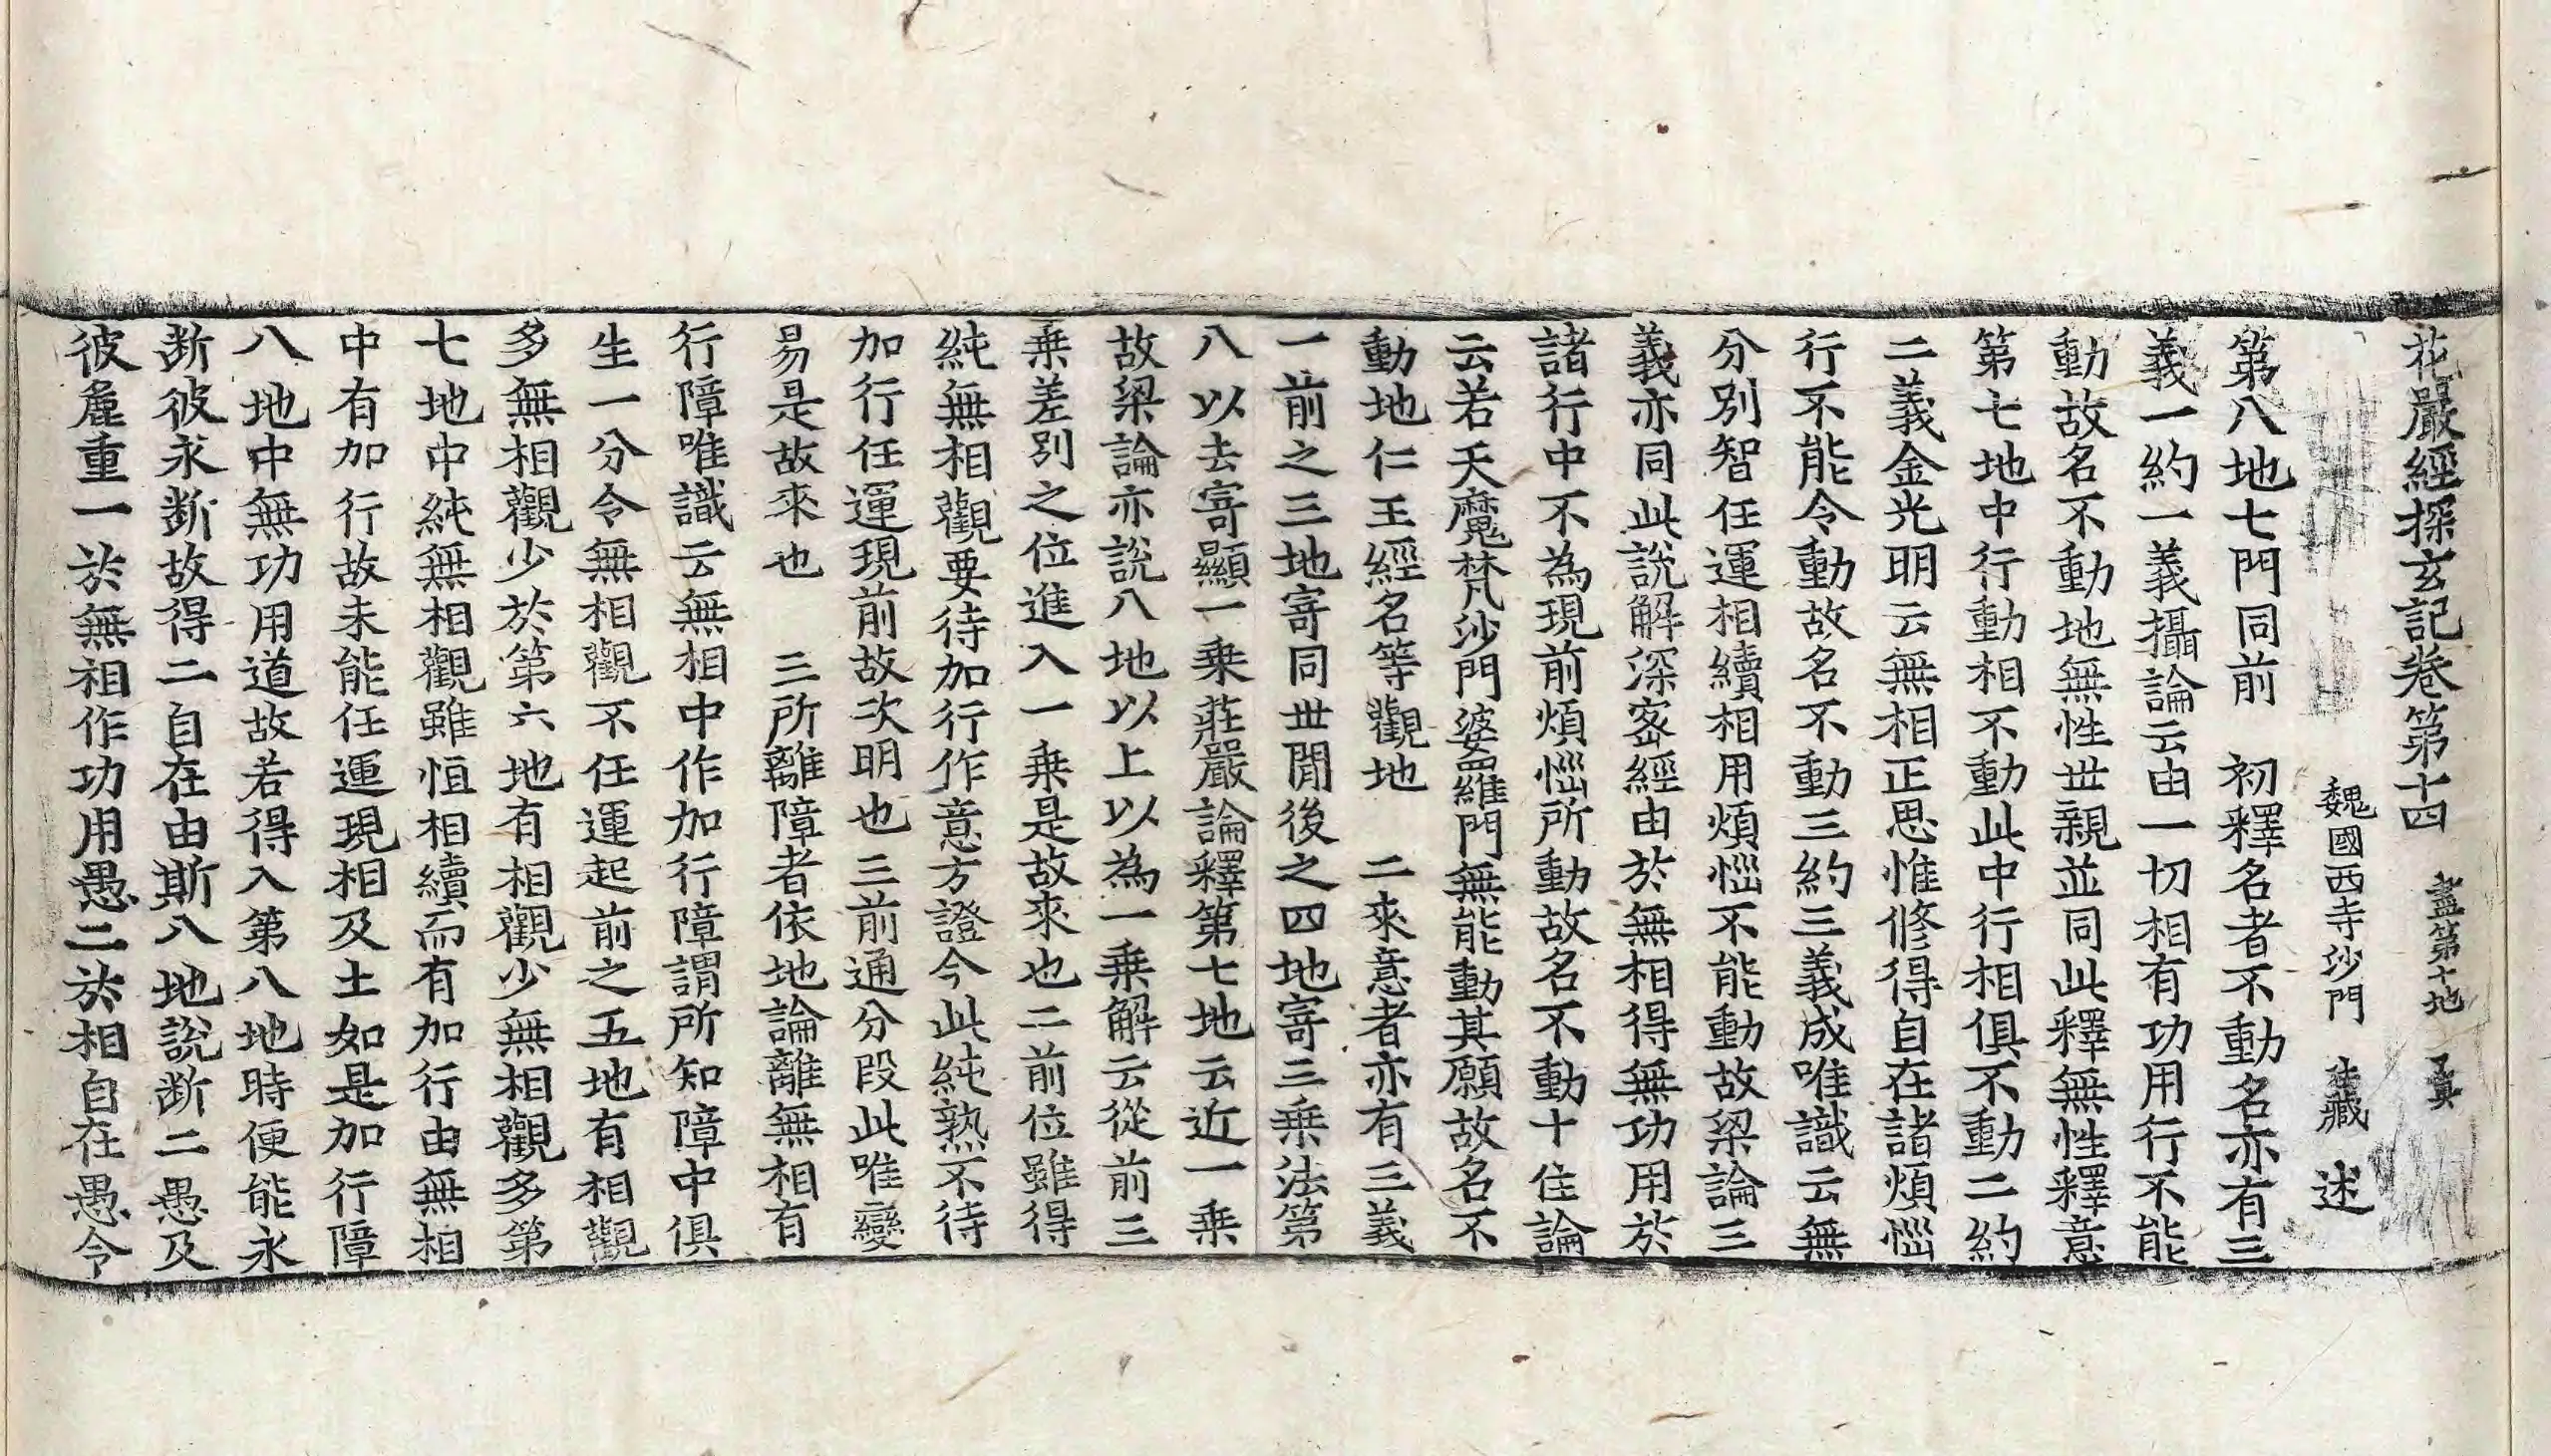 花嚴經探玄記卷第十四 盡第十地
魏國西寺沙門 法藏 述
第八地七門同前 初釋名者不動名亦有三
義一約一義攝論云由一切相有功用行不能
動故名不動地無性世親並同此釋無性釋意
第七地中行動相不動此中行相俱不動二約
二義金光明云無相正思惟修得自在諸煩惱
行不能令動故名不動三約三義成唯識云無
分別智任運相續相用煩惱不能動故梁論三
義亦同此說解深密經由於無相得無功用於
諸行中不為現前煩惱所動故名不動十住論
云若天魔梵沙門婆羅門無能動其願故名不
動地仁王經名等觀地 二來意者亦有三義
一前之三地寄同世間後之四地寄三乘法第
八以去寄顯一乘莊嚴論釋第七地云近一乘
故梁論亦說八地以上以為一乘解云從前三
乘差別之位進入一乘是故來也二前位雖得
純無相觀要待加行作意方證今此純熟不待
加行任運現前故次明也三前通分段此唯變
易是故來也 三所離障者依地論離無相有
行障唯識云無相中作加行障謂所知障中俱
生一分令無相觀不任運起前之五地有相觀
多無相觀少於第六地有相觀少無相觀多第
七地中純無相觀雖恒相續而有加行由無相
中有加行故未能任運現相及土如是加行障
八地中無功用道故若得入第八地時便能永
斷彼永斷故得二自在由斯八地說斷二愚及
彼麁重一於無相作功用愚二於相自在愚令